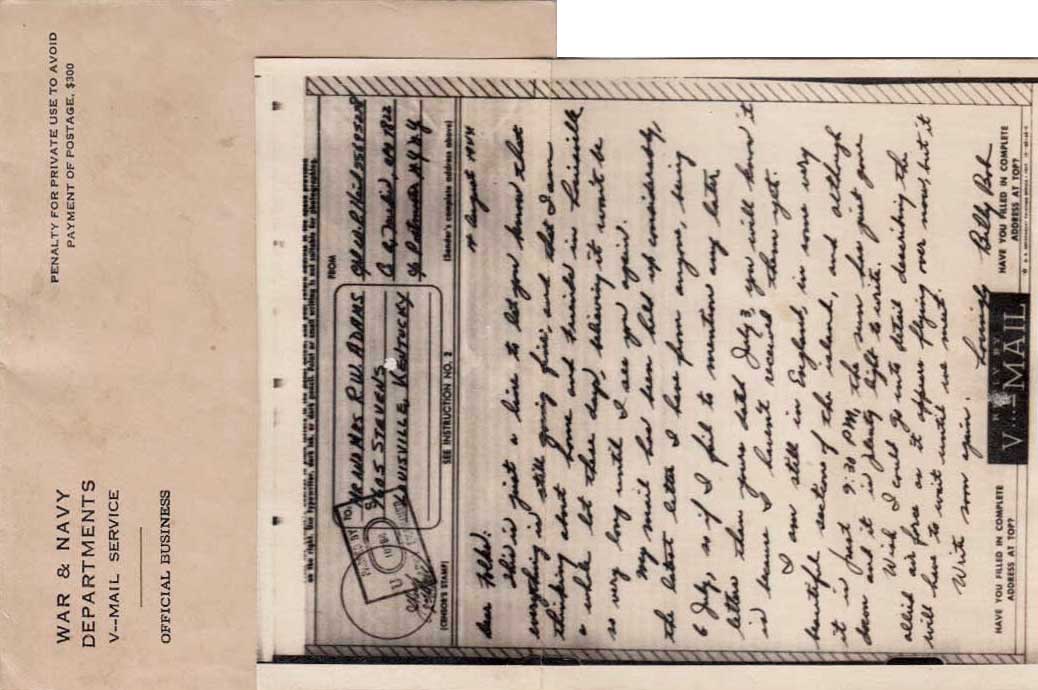 PENALTY FOR PRIVATE USE TO AVOID
PAYMENT OF POSTAGE, $300
WAR & NAVY
DEPARTMENTS
V--MAIL SERVICE
OFFICIAL BUSINESS
TO:
MR AND MRS R.W. ADAMS
STEVENS
LOUISVILLE, KENTUCKY
FROM
(CENSOR'S STAMP)
SEE INSTRUCTION NO. 2
(Sender's complete address above)
August 1944
Dear Folks:
This is just a line to let you know that
everything is still going fine, and that I am
thinking about home and friends in Louisville
a whole lot these days. believing it won't be
so very long until I see you again.
My mail has been held up considerably,
the latest letter I have from anyone, being
6 July, so if I fail to mention any later
letters than yours dated July 3, you will know it
is because I havent received them yet.
I am still in England, in some very
beautiful sections of the island, and although
it is past 9:30 PM, the sun has just gone
down and it is plenty light to write.
Wish I could go into detail describing the
allied air force as it appears flying over now, but it
will have to wait until we meet.
Write soon again.
Lovingly
Billy Bob
HAVE YOU FILLED IN COMPLETE
ADDRESS AT TOP?
V--MAIL
HAVE YOU FILLED IN COMPLETE
ADDRESS AT TOP?